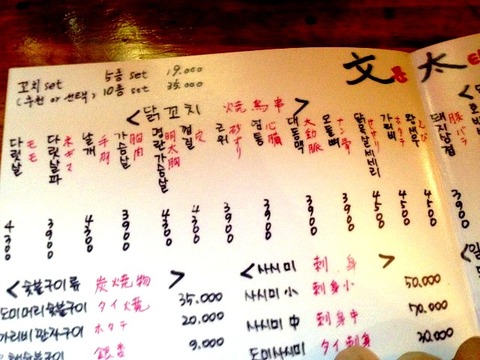 꼬치 set 5종 set 19.000
(추천 or 선택) 10종 set 35.000
文 太
< 닭꼬치 焼鳥串 >
다릿살 モモ 4300
다릿살파 ネギマ 3900
날개 手羽 4300
가슴살 胸肉 3900
명란가슴살 明太胸 4300
껍질 皮 4300
근위 砂ずり 3900
염통 心臓 3900
대동맥 大動脈 3900
모듬뼈 3900
가리비 ホタテ
왕새우 えび
돼지삼겹 豚バラ 3900
< 숯불구이류 炭焼物 >
도미머리숯불구이 タイ焼 35.000
가리비관자구이 ホタテ 20.000
銀杏 9.000
< 사시미 刺身 >
사시미 小 刺身小 50.000
사시미 中 刺身中 70.000
도미사시미 タイ刺身 30.000